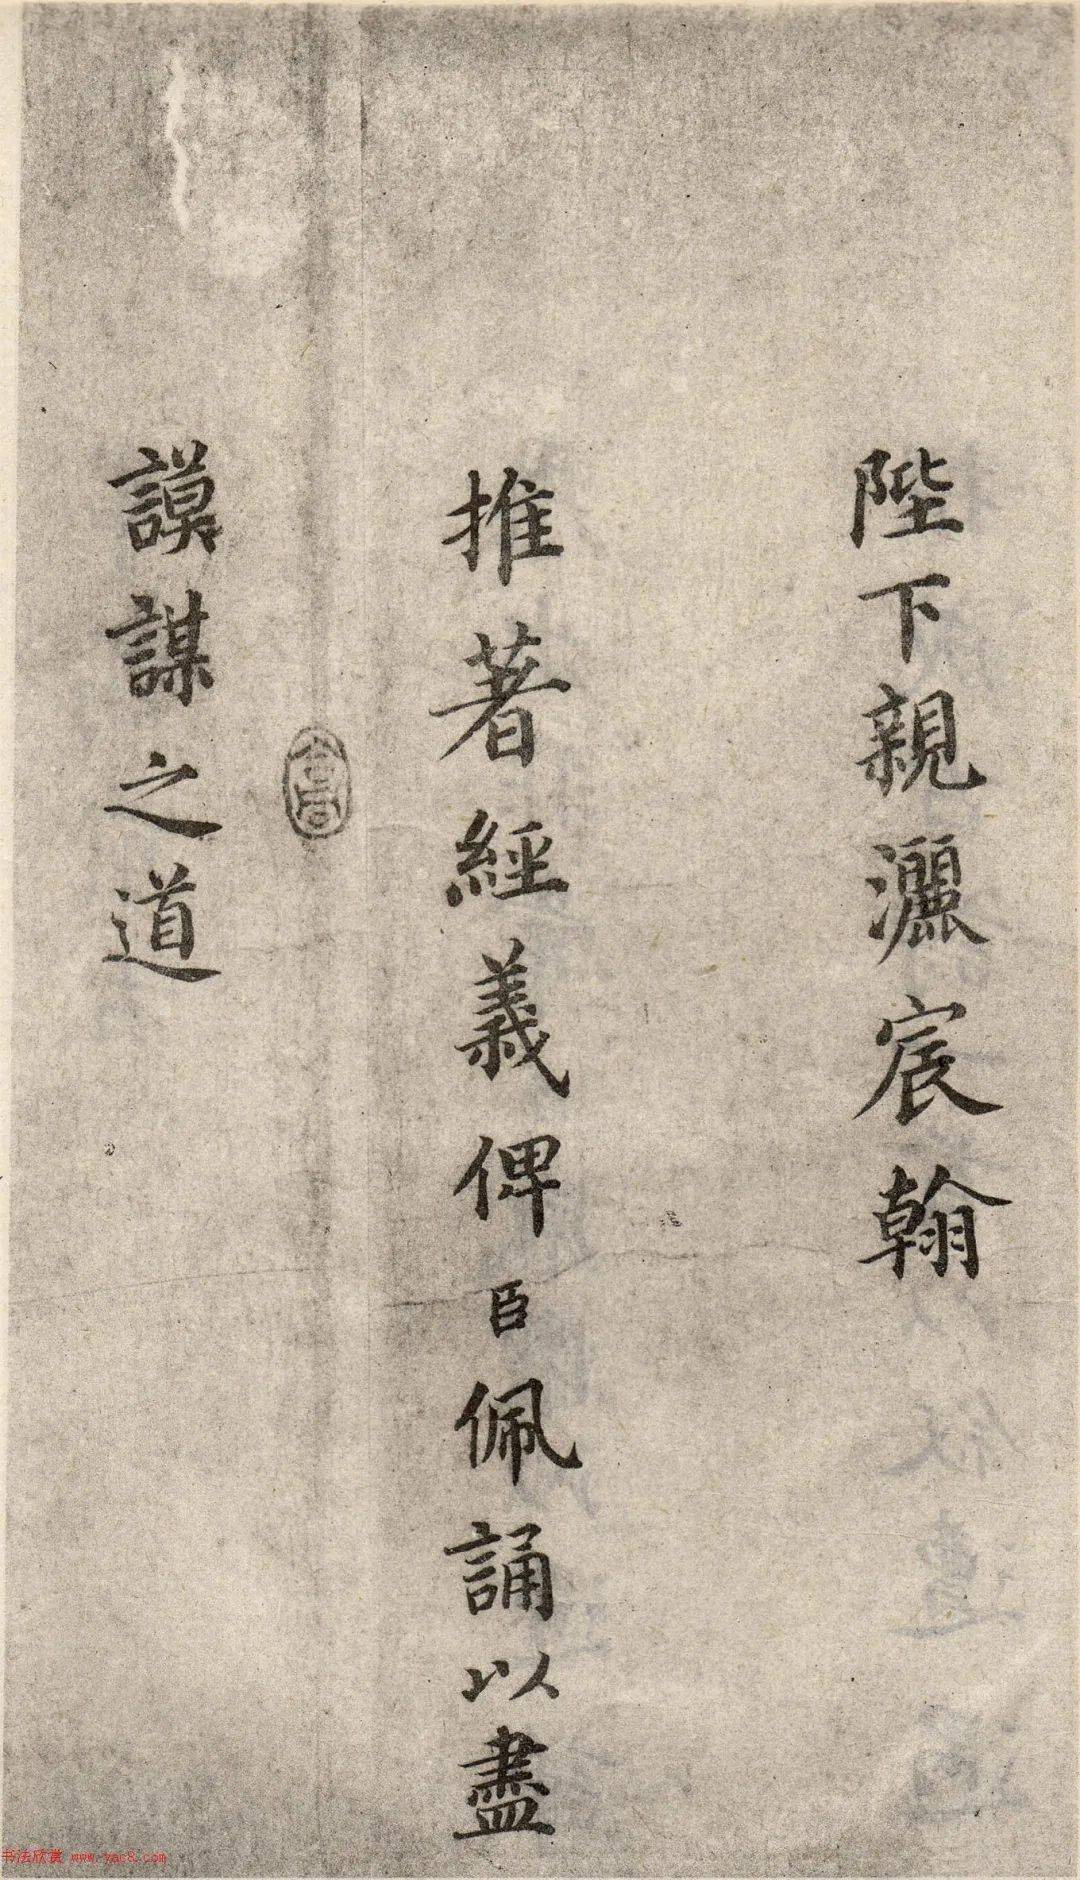 陛下親灑宸翰
推著經義俾臣佩誦以盡
謨謀之道
书法欣赏 www.yac8.com